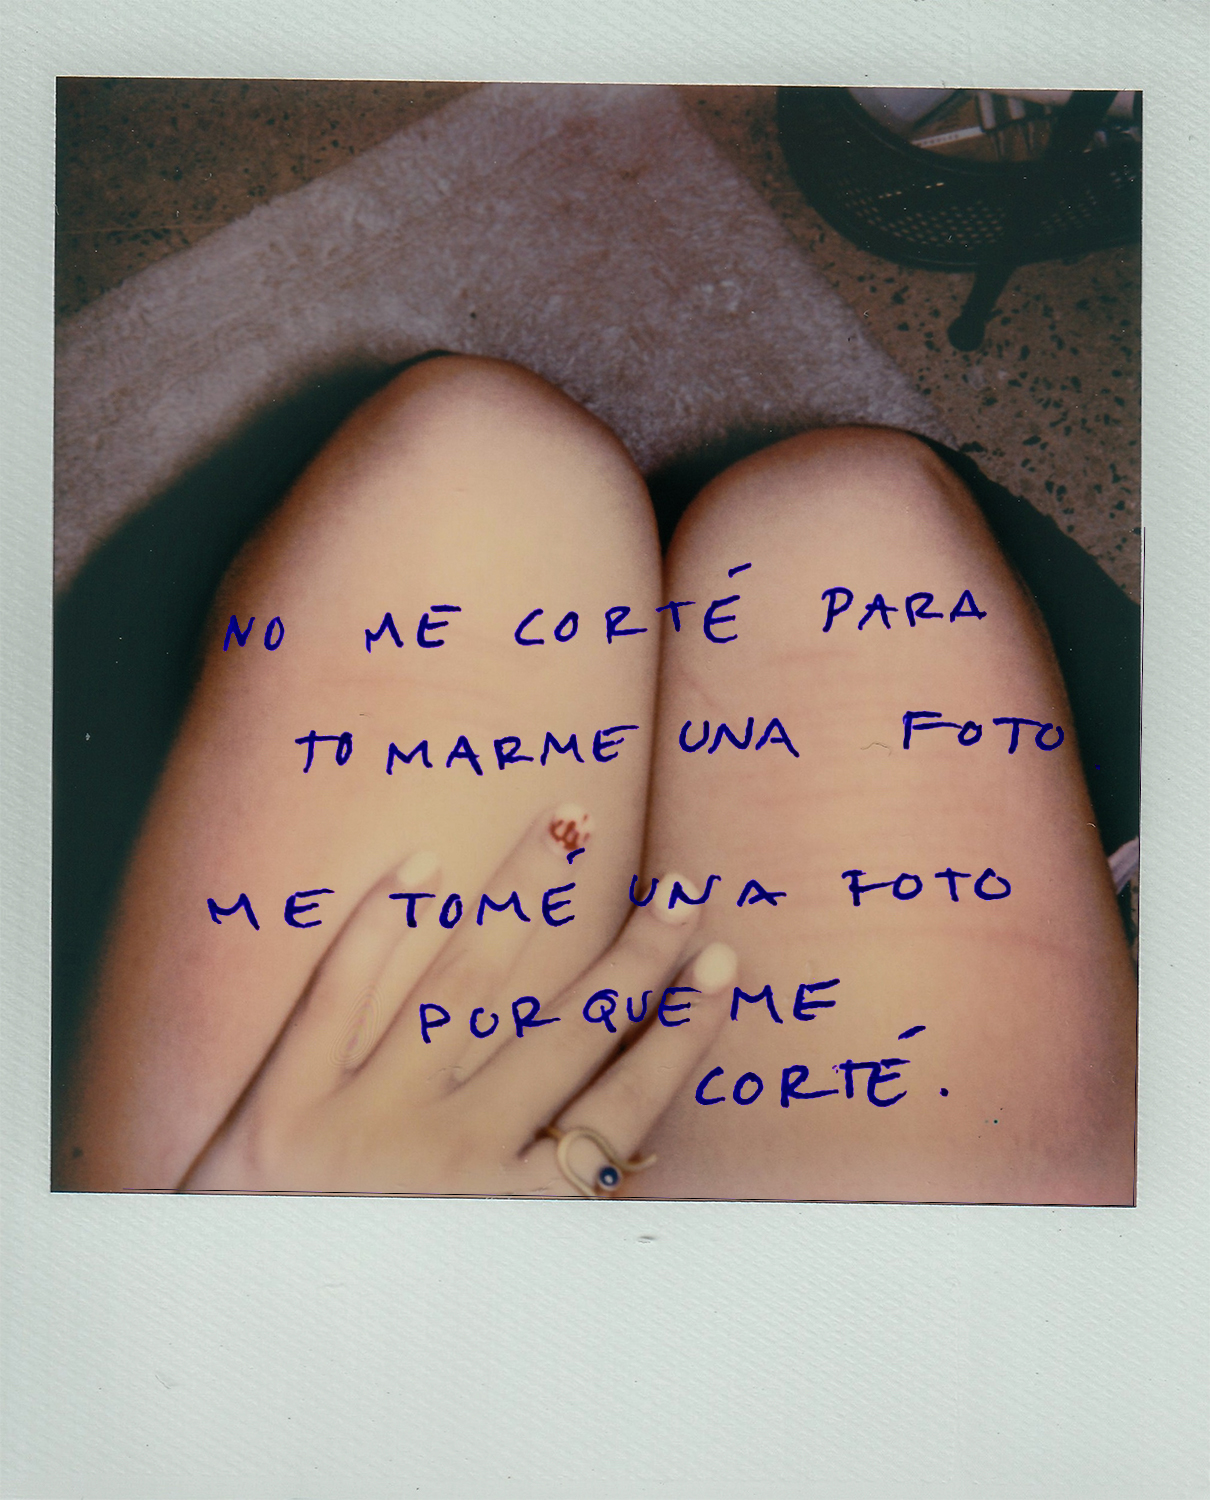 NO ME CORTÉ PARA
TOMARME UNA FOTO
ME TOMÉ UNA FOTO
PORQUE ME
CORTÉ.